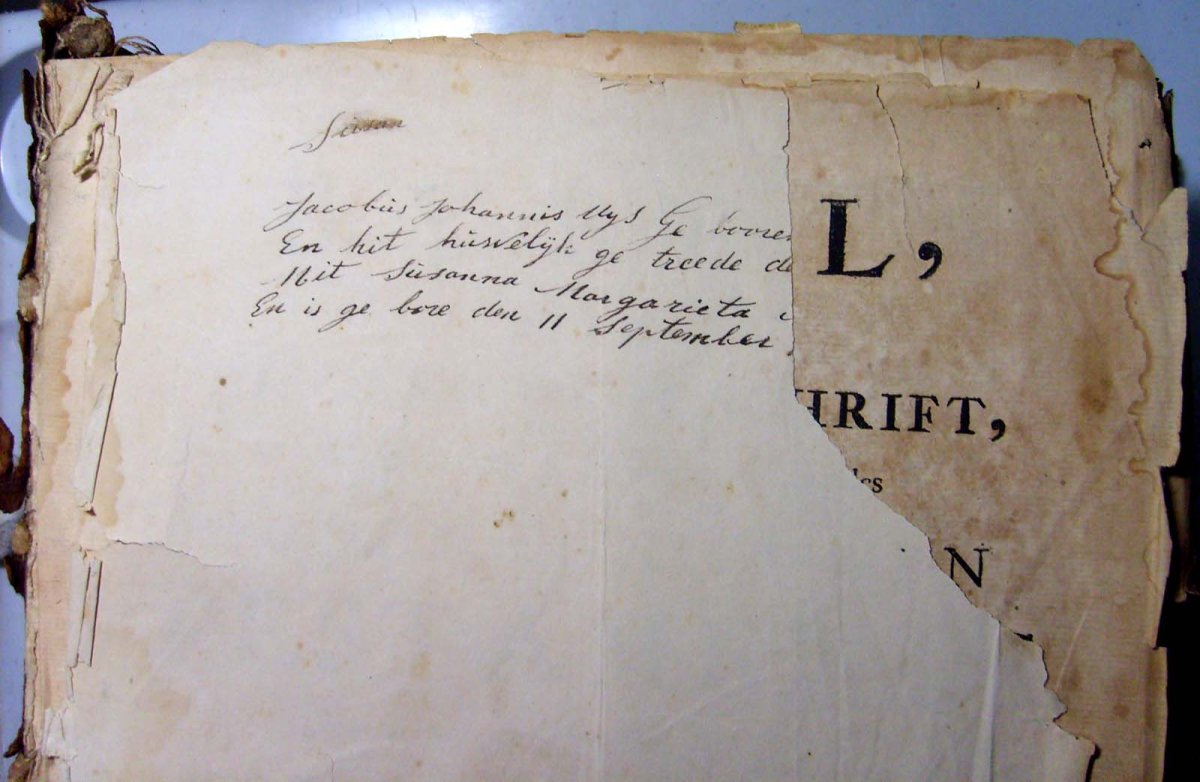 Susan
Jacobus Johannis Uys Ge booren
En hit husvelyk ge treede de
Mit Susanna Margarieta
En is ge bore den 11 September
L,
HRIFT,
des
N